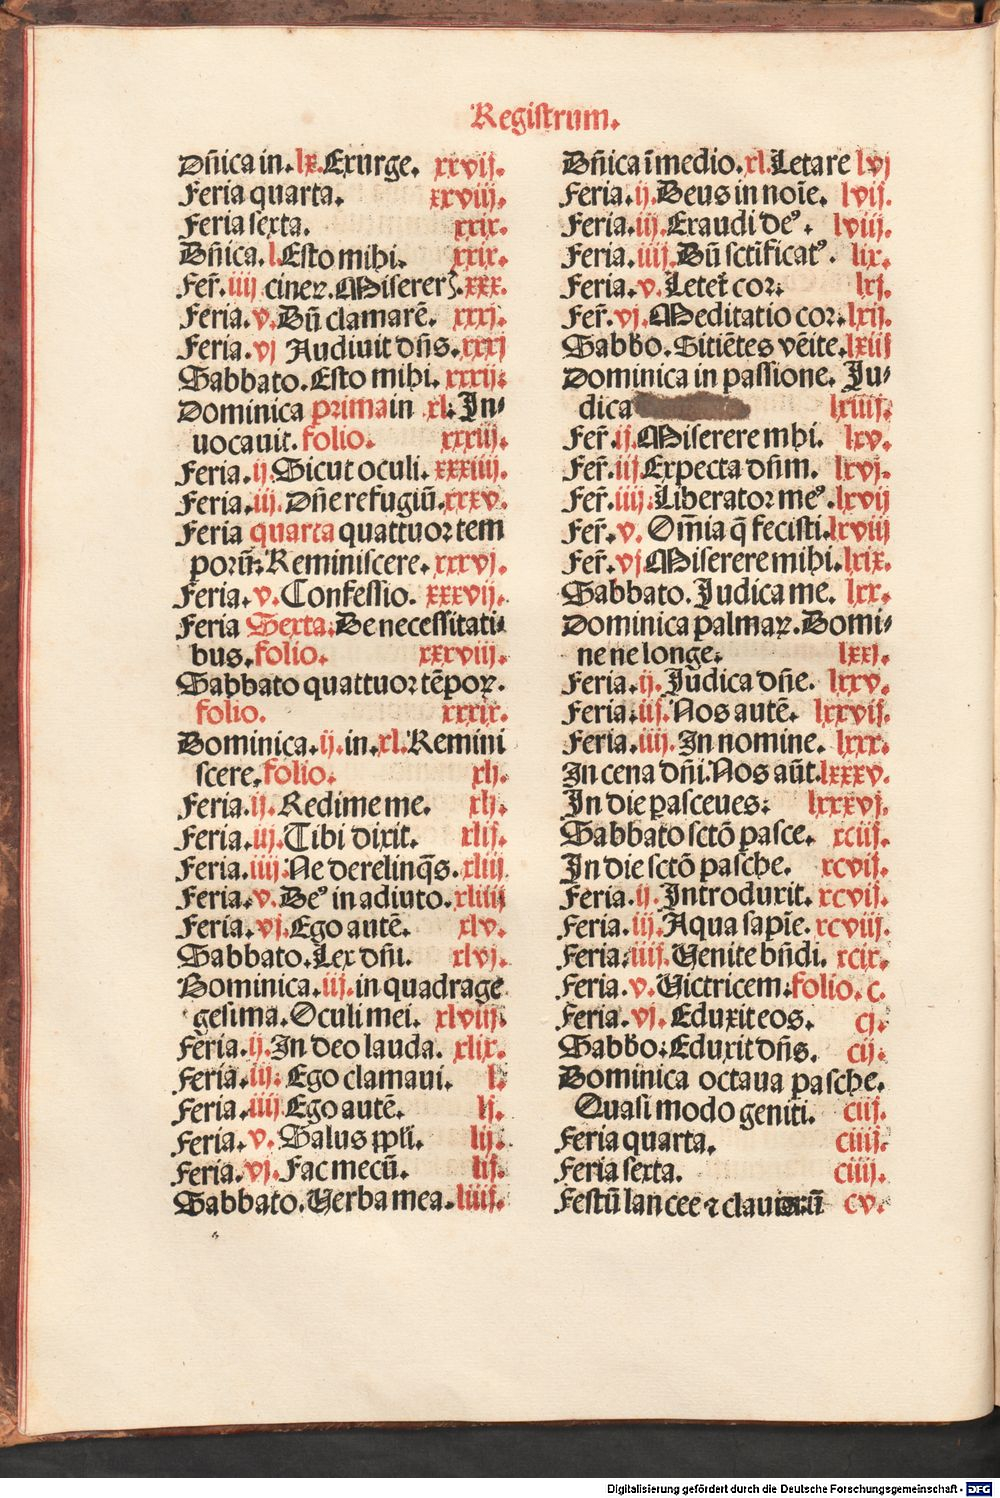 Registrum.
Dñica in. lx. Exurge. xxvij.
Feria quarta. xxviij.
Feria sexta. xxix.
Dñica. l. Esto mihi. xxix.
Fer̃. iiij cineꝝ. Miserer̃. xxx.
Feria. v. Dũ clamarẽ. xxxj.
Feria. vj Audiuit dñs. xxxj
Sabbato. Esto mihi. xxxij.
Dominica prima in xl. In⸗
uocauit. folio. xxxiij.
Feria. ij. Sicut oculi. xxxiiij.
Feria. iij. Dñe refugiũ. xxxv.
Feria quarta quattuor tem
porũ. Reminiscere. xxxvj.
Feria. v. Confessio. xxxvij.
Feria Sexta. De necessitati⸗
bus. folio. xxxviij.
Sabbato quattuor tẽpoꝝ.
folio. xxxix.
Dominica. ij. in. xl. Remini
scere. folio. xlj.
Feria. ij. Redime me. xlj.
Feria. iij. Tibi dixit. xlij.
Feria. iiij. Ne derelinq̃s. xliij
Feria. v. Deꝰ in adiuto. xliiij
Feria. vj. Ego autẽ. xlv.
Sabbato. Lex dñi. xlvj.
Dominica. iij. in quadrage
gesima. Oculi mei. xlviij.
Feria. ij. In deo lauda. xlix.
Feria. iij. Ego clamaui. l.
Feria. iiij Ego autẽ. lj.
Feria. v. Salus ppl̃i. lij.
Feria. vj. Fac mecũ. lij.
Sabbato. Verba mea. liiij.
Dñica ĩ medio. xl. Letare lvj
Feria. ij. Deus in noĩe. lvij.
Feria. iij. Exaudi deꝰ. lviij.
Feria. iiij. Dũ sctificatꝰ. lix.
Feria. v. Letet̃ cor. lxj.
Fer̃. vj. Meditatio cor. lxij.
Sabbo. Sitiẽtes vẽite. lxiij
Dominica in passione. Ju⸗
dica lxiiij.
Fer̃. ij. Miserere mhi. lxv.
Fer̃. iij Expecta dñm. lxvj.
Fer̃. iiij. Liberator meꝰ. lxvij
Fer̃. v. Om̃ia q̃ fecisti. lxviij
Fer̃. vj Miserere mihi. lxix.
Sabbato. Judica me. lxx.
Dominica palmaꝝ. Domi⸗
ne ne longe. lxxj.
Feria. ij. Judica dñe. lxxv.
Feria. iij. Nos autẽ. lxxvij.
Feria. iiij. In nomine. lxxx.
In cena dñi. Nos aũt. lxxxv.
In die pasceues. lxxxvj.
Sabbato sctõ pasce. xciij.
In die sctõ pasche. xcvij.
Feria. ij. Introduxit. xcvij.
Feria. iij. Aqua sapĩe. xcviij.
Feria. iiij. Venite bñdi. xcix.
Feria. v. Victricem. folio. c.
Feria. vj. Eduxit eos. cj.
Sabbõ. Eduxit dñs. cij.
Dominica octaua pasche.
Quasi modo geniti. ciij.
Feria quarta. ciiij.
Feria sexta. ciiij.
Festũ lancee ⁊ clauorũ cv.
Digitalisierung gefördert durch die Deutsche Forschungsgemeinschaft - DFG